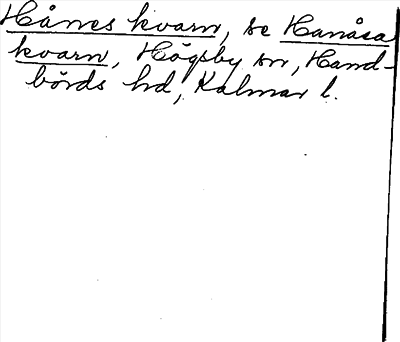 Hånes kvarn, se Hanåsa
kvarn, Högsby sn, Hand-
börds hd, Kalmar l.